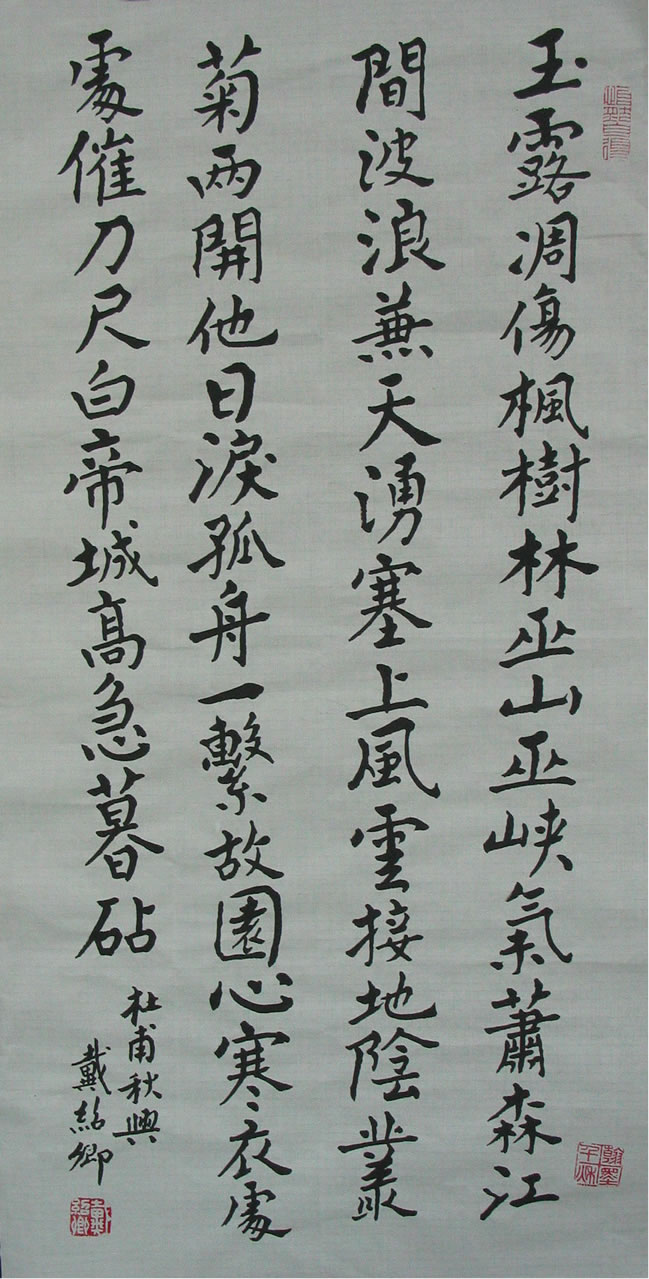 玉露凋傷楓樹林巫山巫峽氣蕭森江
間波浪兼天湧塞上風雲接地陰叢
菊兩開他日淚孤舟一繫故園心寒衣處
處催刀尺白帝城高急暮砧
杜甫秋興
戴紹卿
翰墨千秋
戴紹卿